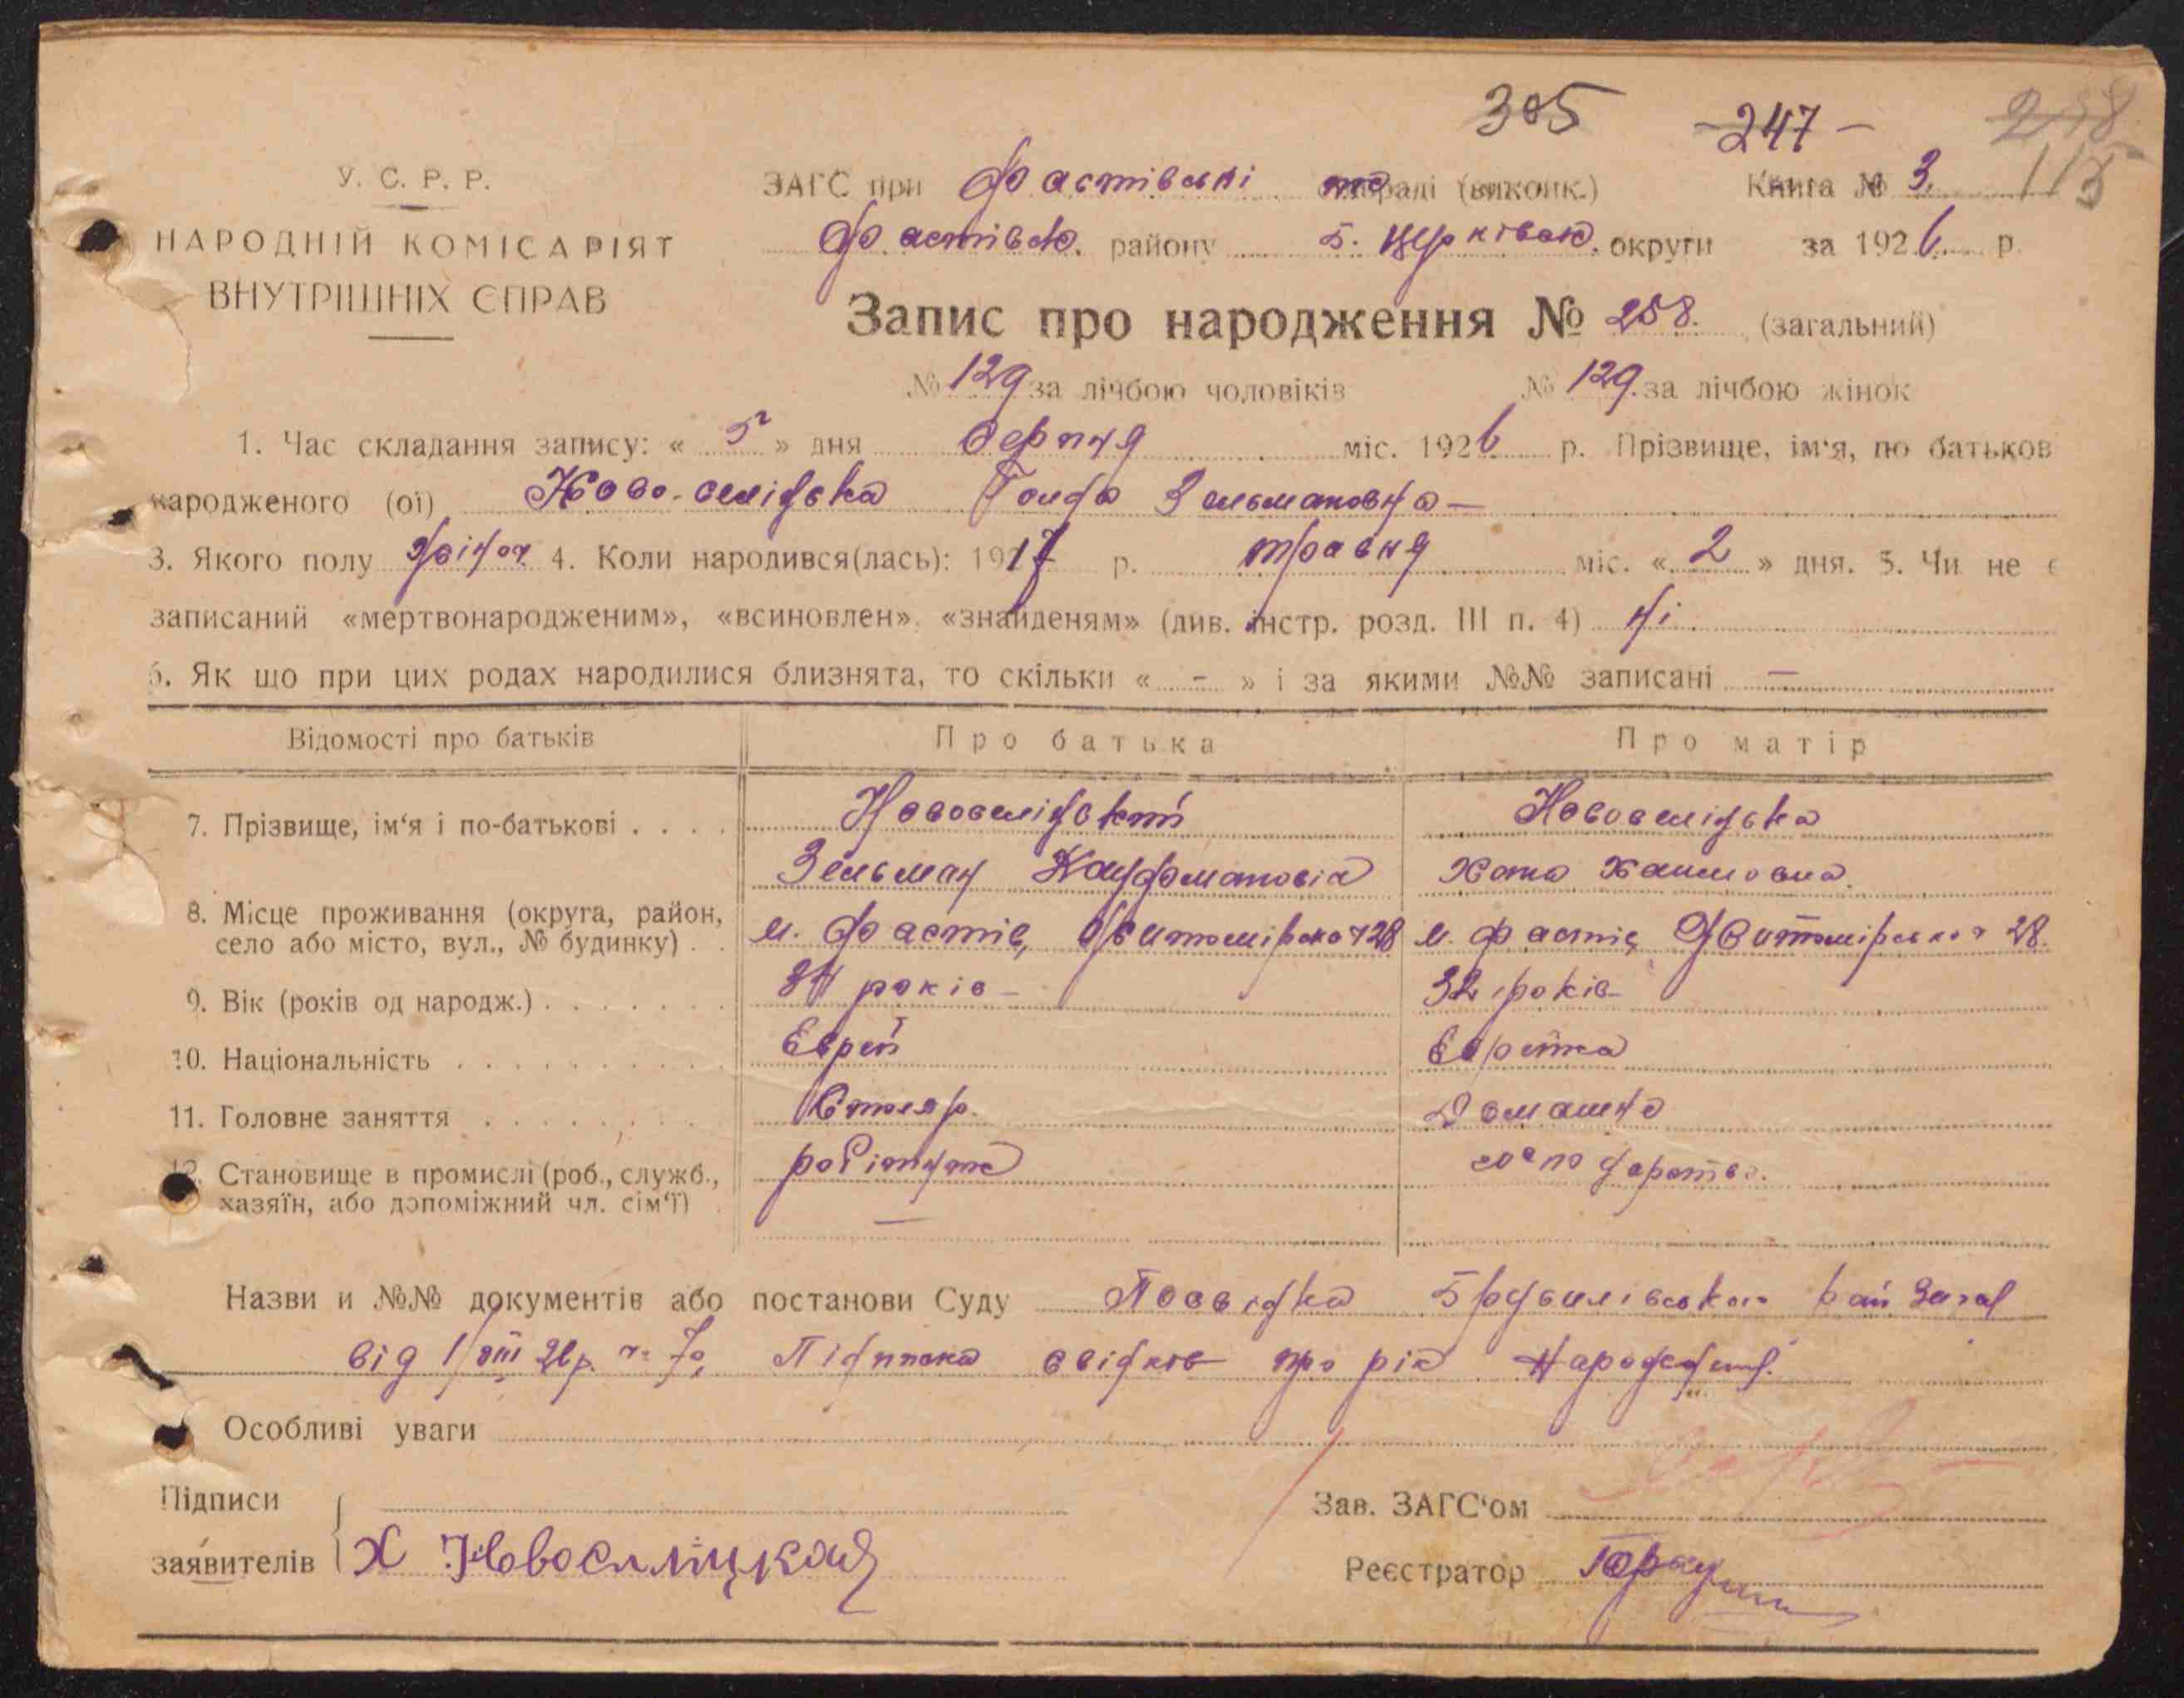 305 -247-
У. С. Р. Р.
ЗАГС при Фастівські раді (виконк.) Книга № 3. 115
НАРОДНІЙ КОМІСАРІЯТ
Фастівськ. району Б. Церківськ. округи за 1926 р.
ВНУТРІШНІХ СПРАВ
Запис про народження № 258. (загальний)
№ 129 за лічбою чоловіків № 129. за лічбою жінок
1. Час складання запису: « 5 » дня серпня міс. 1926 р. Прізвище, ім'я, по батьков
народженого (ої) Ново-селідська Голда Зельмановна —
3. Якого полу жіноч. 4. Коли народився(лась): 1917 р. травня міс. « 2 » дня. 5. Чи не є
записаний «мертвонародженим», «всиновлен», «знайденям» (див. інстр. розд. III п. 4) ні
6. Як що при цих родах народилися близнята, то скільки « - » і за якими №№ записані —
Відомості про батьків Про батька Про матір
7. Прізвище, ім'я і по-батькові . . . . Новоселідський Новоселідська
Зельман
8. Місце проживання (округа, район, село або місто, вул., № будинку) . . м. Фастів, Житомірська 28 м. Фастів, Житомірська 28.
9. Вік (років од народж.) . . . . . . . 34 років — 32 років —
10. Національність . . . . . . . . . . Єврей Єврейка
11. Головне заняття . . . . . . . . Столяр. Домашнє
12. Становище в промислі (роб., служб., хазяїн, або допоміжний чл. сім'ї) робітник господарство.
—
Назви и №№ документів або постанови Суду Посвідка
від 1/VIII 26 р. Підписка свідків про рік
Особливі уваги
Підписи
Зав. ЗАГС'ом
заявителів Х Новоселицкая
Реєстратор